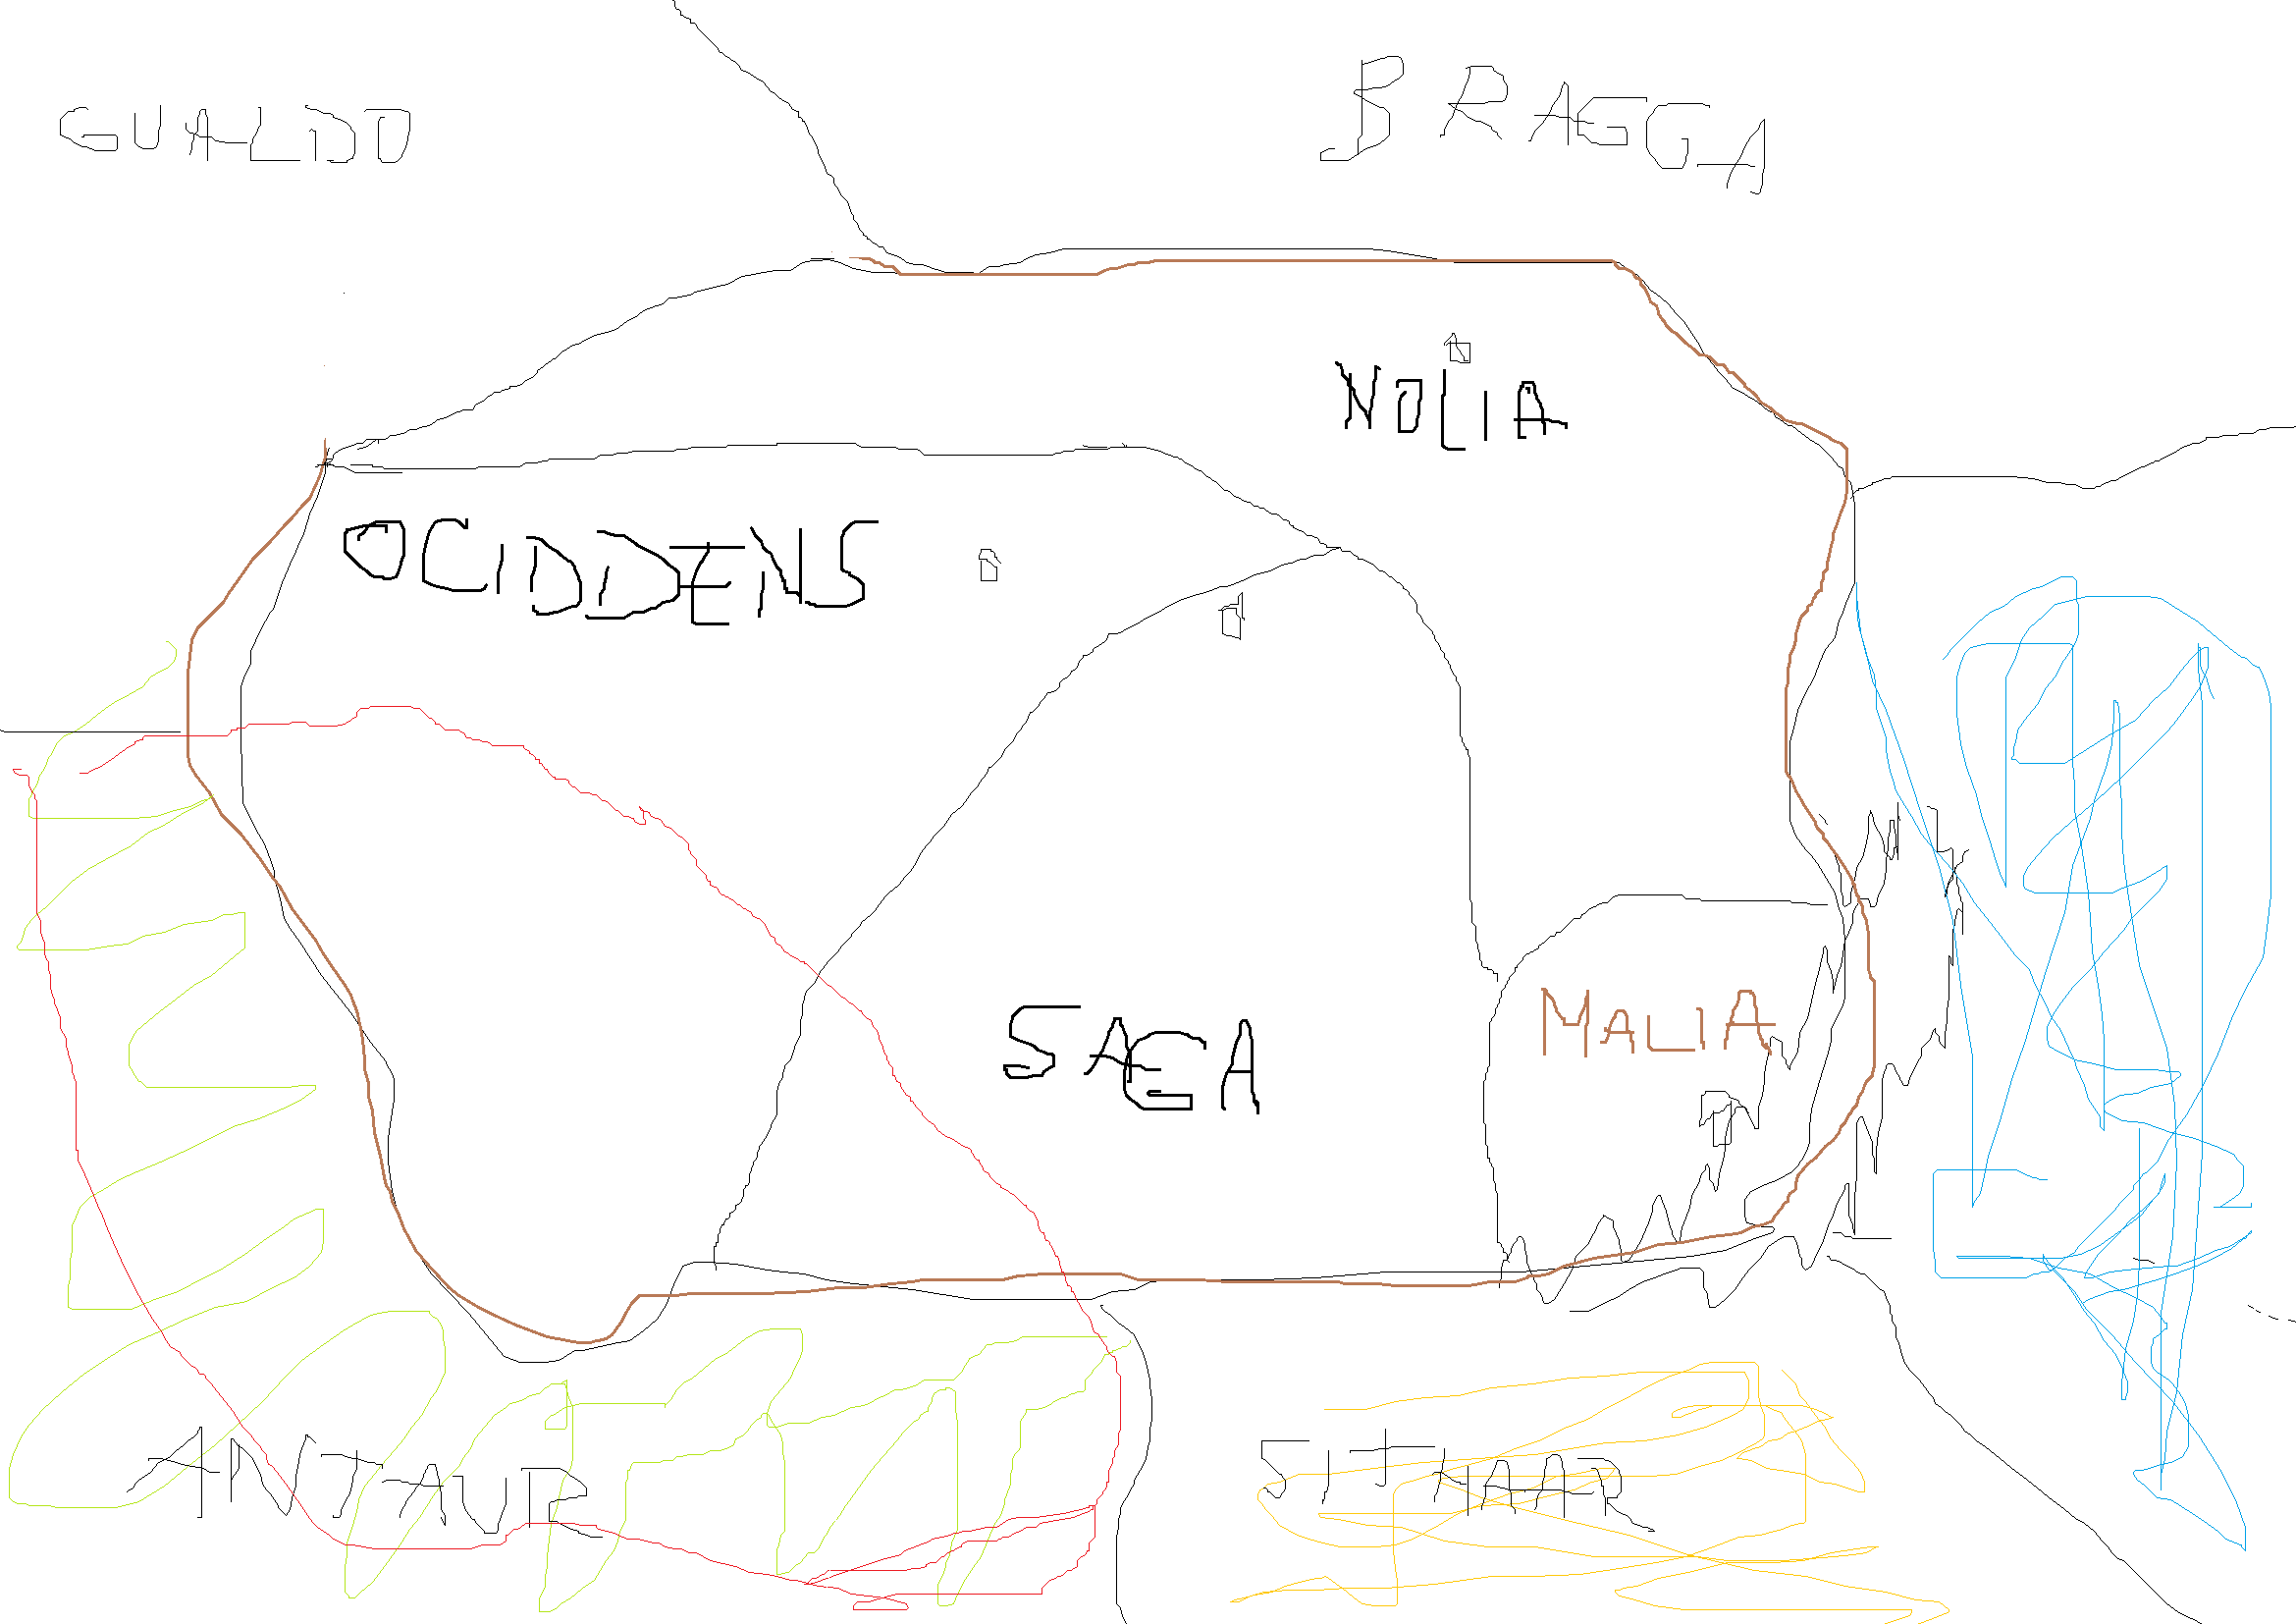 GUALDO
BRAGGA
NOLIA
OCIDDENS
SAGA
MALIA
ANTAUR
SITHAAR